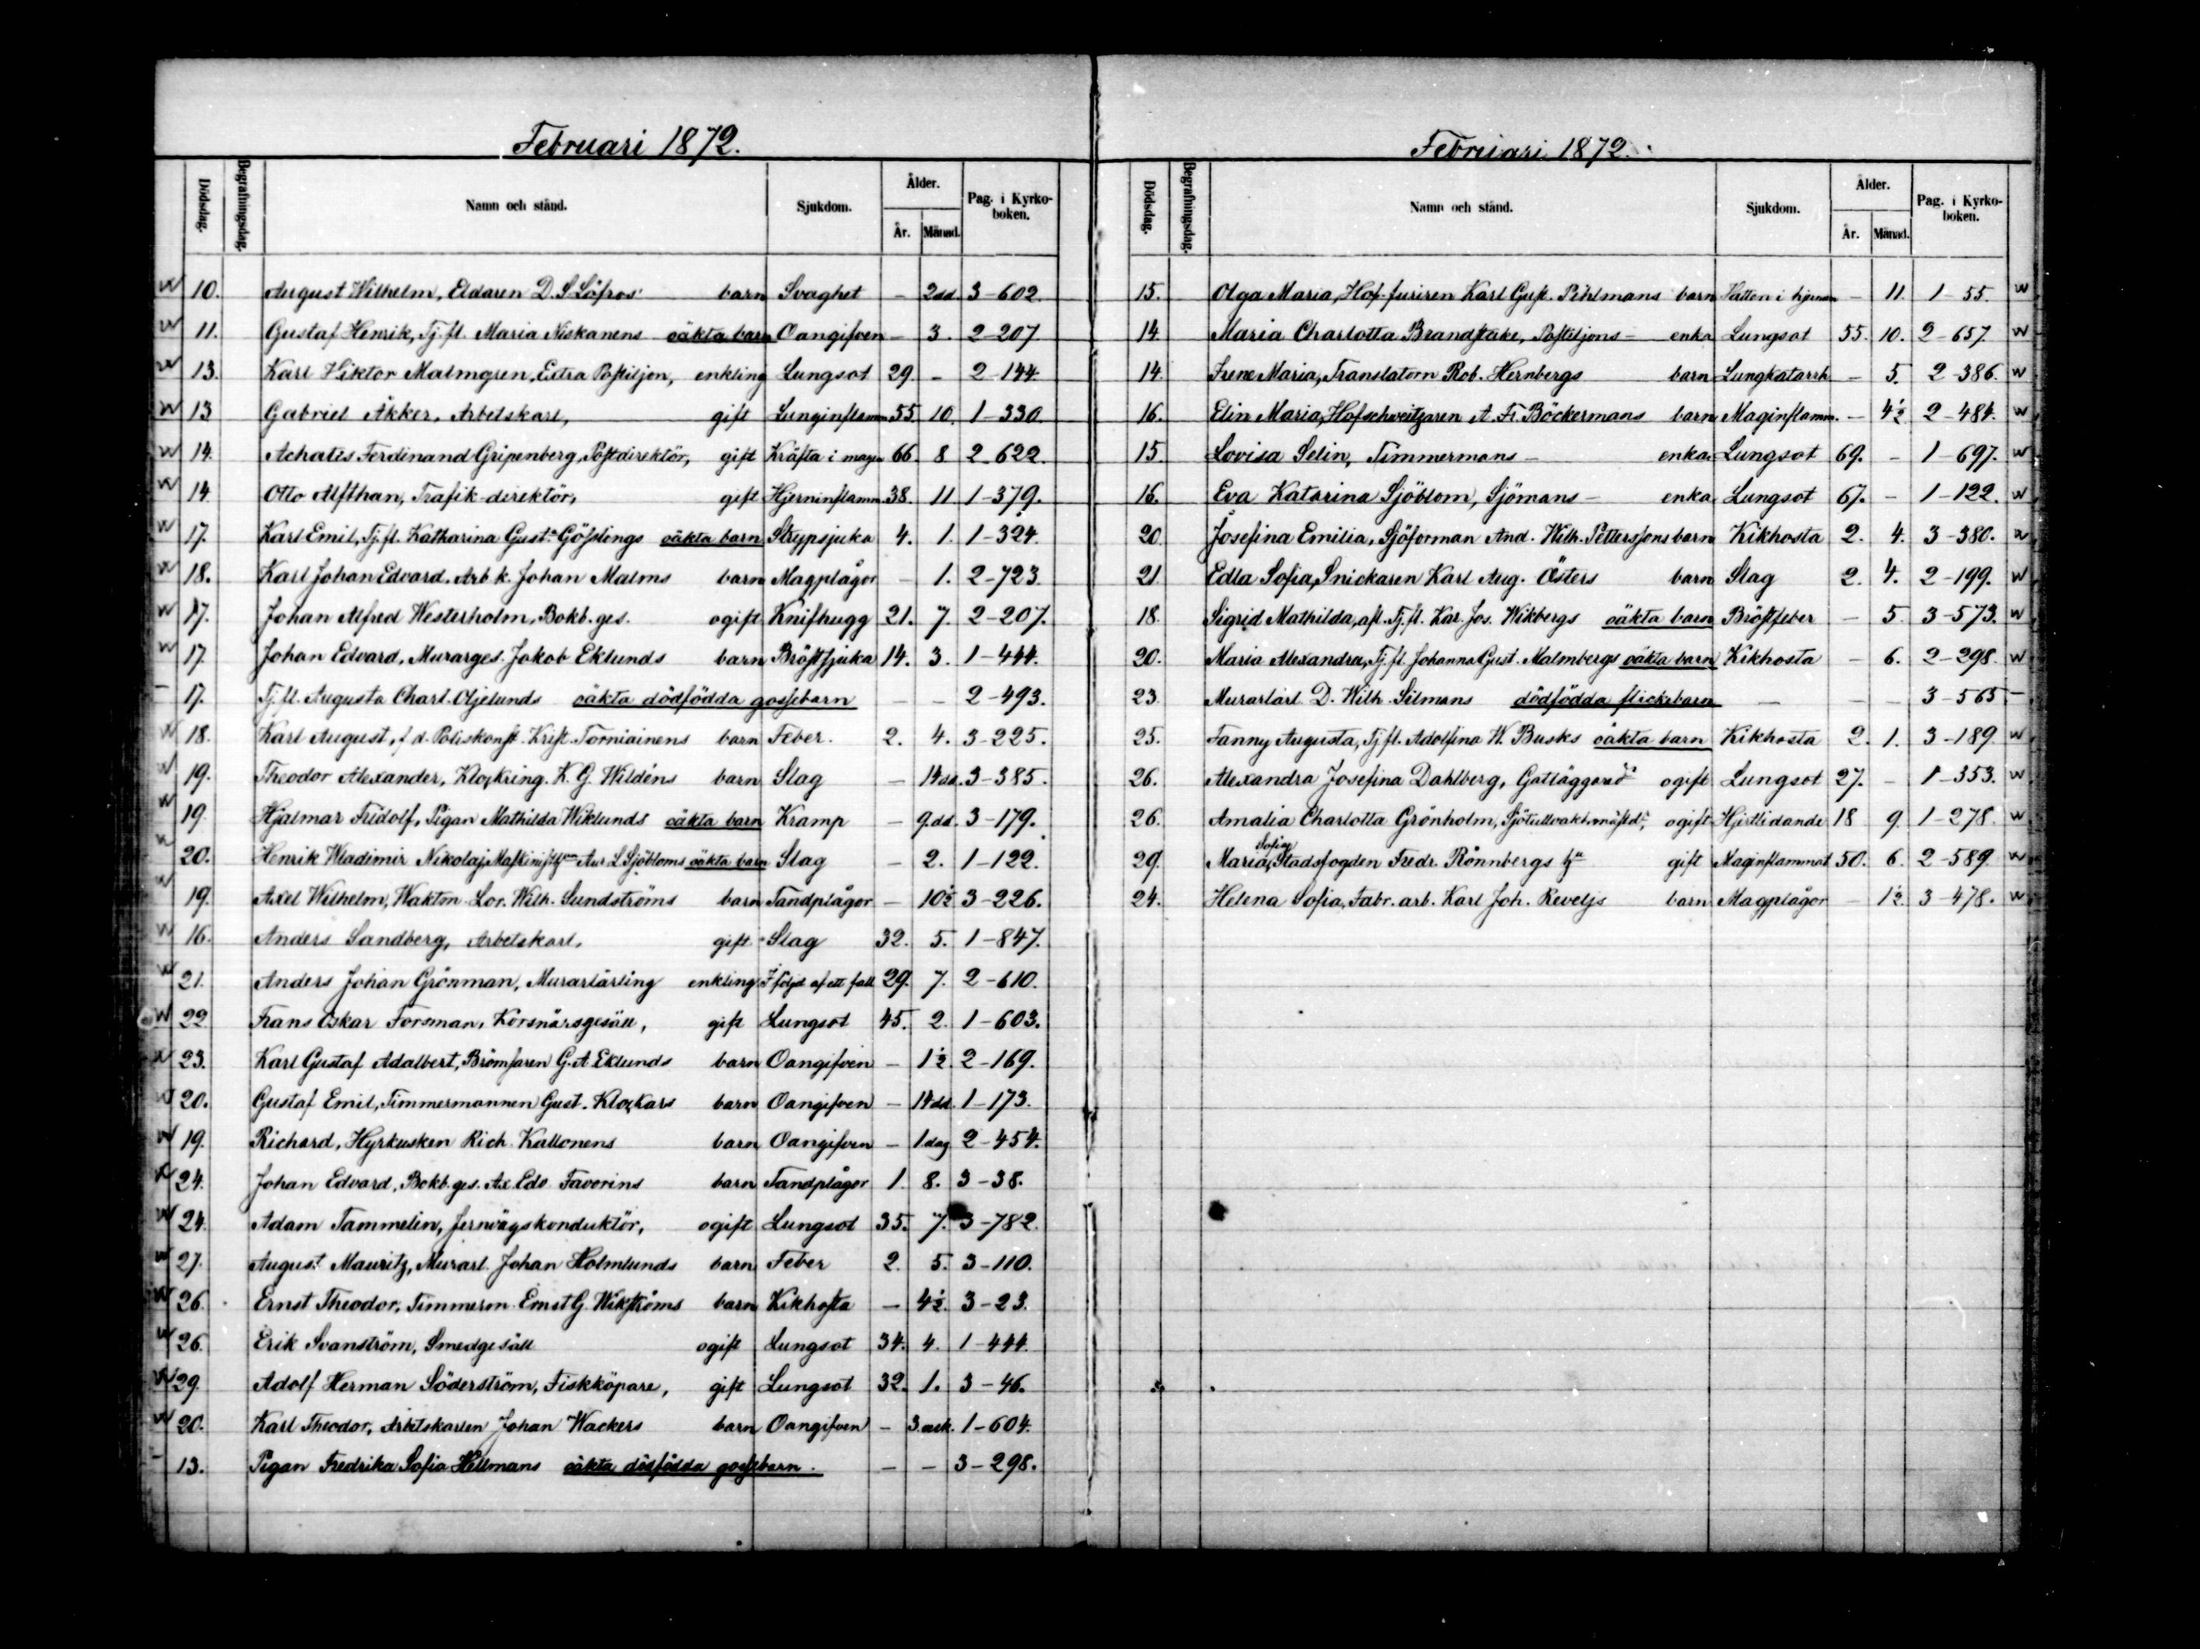 Februari 1872.
Dödsdag. Begrafningsdag. Namn och stånd. Sjukdom. Ålder. År. Månad. Pag. i Kyrko-boken.
W 10. August Wilhelm, Eldaren D. S. Löfros' barn Svaghet – 2 dd 3-602.
W 11. Gustaf Henrik, Tj. fl. Maria Niskanens oäkta barn Oangifven – 3. 2-207.
W 13. Karl Viktor Malmgren, Extra Postiljon, enkling Lungsot 29. – 2-144.
W 13 Gabriel Åkker, Arbetskarl, gift Lunginflamm. 55. 10. 1-330.
W 14. Achates Ferdinand Gripenberg, Postdirektör, gift Kräfta i magen 66. 8 2-622.
W 14 Otto Alfthan, Trafik-direktör, gift Hjerninflamm. 38. 11 1-379.
W 17. Karl Emil, Tj. fl. Katharina Gust:a Gösslings oäkta barn Strypsjuka 4. 1. 1-324.
W 18. Karl Johan Edvard, Arb.k. Johan Malms barn Magplågor – 1. 2-723.
W 17. Johan Alfred Westerholm, Bokb. ges. ogift Knifhugg 21. 7. 2-207.
W 17. Johan Edvard, Murarges. Jakob Eklunds barn Bröstsjuka 14. 3. 1-444.
– 17. Tj. fl. Augusta Charl. Oljelunds oäkta dödfödda gossebarn – – 2-493.
W 18. Karl August, f. d. Poliskonst. Krist. Torniainens barn Feber. 2. 4. 3-225.
W 19. Theodor Alexander, Klockring. K. G. Wildéns barn Slag – 14 dd. 3-385.
W 19. Hjalmar Fridolf, Pigan Mathilda Wiklunds oäkta barn Kramp – 9. dd. 3-179.
W 20. Henrik Wladimir Nikolaj, Aur. L. Sjöbloms oäkta barn Slag – 2. 1-122.
W 19. Axel Wilhelm, Wakton Lor. Wilh. Sundströms barn Tandplågor – 10½ 3-226.
W 16. Anders Sandberg, Arbetskarl, gift Slag 32. 5. 1-847.
W 21. Anders Johan Grönman, Murarlärling enkling I följd af ett fall 29. 7. 2-610.
W 22 Frans Oskar Forsman, Korsnärsgesäll, gift Lungsot 45. 2. 1-603.
W 23. Karl Gustaf Adalbert, G. A. Eklunds barn Oangifven – 1½ 2-169.
W 20. Gustaf Emil, Timmermannen Gust. Klockars barn Oangifven – 14 dd. 1-173.
W 19. Richard, Hyrkusken Rich. Kallonens barn Oangifven – 1 dag 2-454.
W 24. Johan Edvard, Bokb. ges. Ax. Edv. Favorins barn Tandplågor 1. 8. 3-38.
W 24. Adam Tammelin, Jernvägskonduktör, ogift Lungsot 35. 7. 3-782.
W 27. August Mauritz, Murarl. Johan Holmlunds barn Feber 2. 5. 3-110.
W 26. Ernst Theodor, Timmerm. Ernst G. Wikströms barn Kikhosta – 4½ 3-23.
W 26. Erik Svanström, Smedgesäll ogift Lungsot 34. 4. 1-444.
W 29. Adolf Herman Söderström, Fiskköpare, gift Lungsot 32. 1. 3-46.
W 20. Karl Theodor, Arbetskarlen Johan Wackers barn Oangifven – 3 veck. 1-604.
– 13. Pigan Fredrika Sofia Hellmans oäkta dödfödda gossebarn. – – 3-298.
Februari 1872.
Dödsdag. Begrafningsdag. Namn och stånd. Sjukdom. Ålder. År. Månad. Pag. i Kyrko-boken.
15. Olga Maria, Hof-furiren Karl Gust. Pihlmans barn Vatten i hjernan – 11. 1-55. W
14. Maria Charlotta Brandstake, Postiljons – enka Lungsot 55. 10. 2-657. W
14. Irene Maria, Translatorn Rob. Hernbergs barn Lungkatarrh. – 5. 2-386. W
16. Elin Maria, Hofschweitzaren A. Fr. Böckermans barn Maginflamm. – 4½ 2-484. W
15. Lovisa Selin, Timmermans – enka Lungsot 69. – 1-697. W
16. Eva Katarina Sjöblom, Sjömans – enka Lungsot 67. – 1-122. W
20 Josefina Emilia, Sjöforman And. Wilh. Petterssons barn Kikhosta 2. 4. 3-380. W
21 Edla Sofia, Snickaren Karl Aug. Östers barn Slag 2. 4. 2-199. W
18. Sigrid Mathilda, afl. Tj. fl. Kar. Jos. Wikbergs oäkta barn Bröstfeber – 5 3-573. W
20. Maria Alexandra, Tj. fl. Johanna Gust. Malmbergs oäkta barn Kikhosta – 6. 2-298. W
23. Murarlärl. D. Wilh. Silmans dödfödda flickebarn – – – 3-565 –
25. Fanny Augusta, Tj. fl. Adolfina W. Busks oäkta barn Kikhosta 2. 1. 3-189. W
26. Alexandra Josefina Dahlberg, ogift Lungsot 27. – 1-353. W
26. Amalia Charlotta Grönholm, Sjötullvaktmästed:r, ogift Hjertlidande 18 9. 1-278. W
29. Maria Sofia, Stadsfogden Fredr. Rönnbergs h:u gift Maginflammat. 50. 6. 2-589. W
24. Helena Sofia, Fabr. arb. Karl Joh. Reveljs barn Magplågor – 1½ 3-478. W